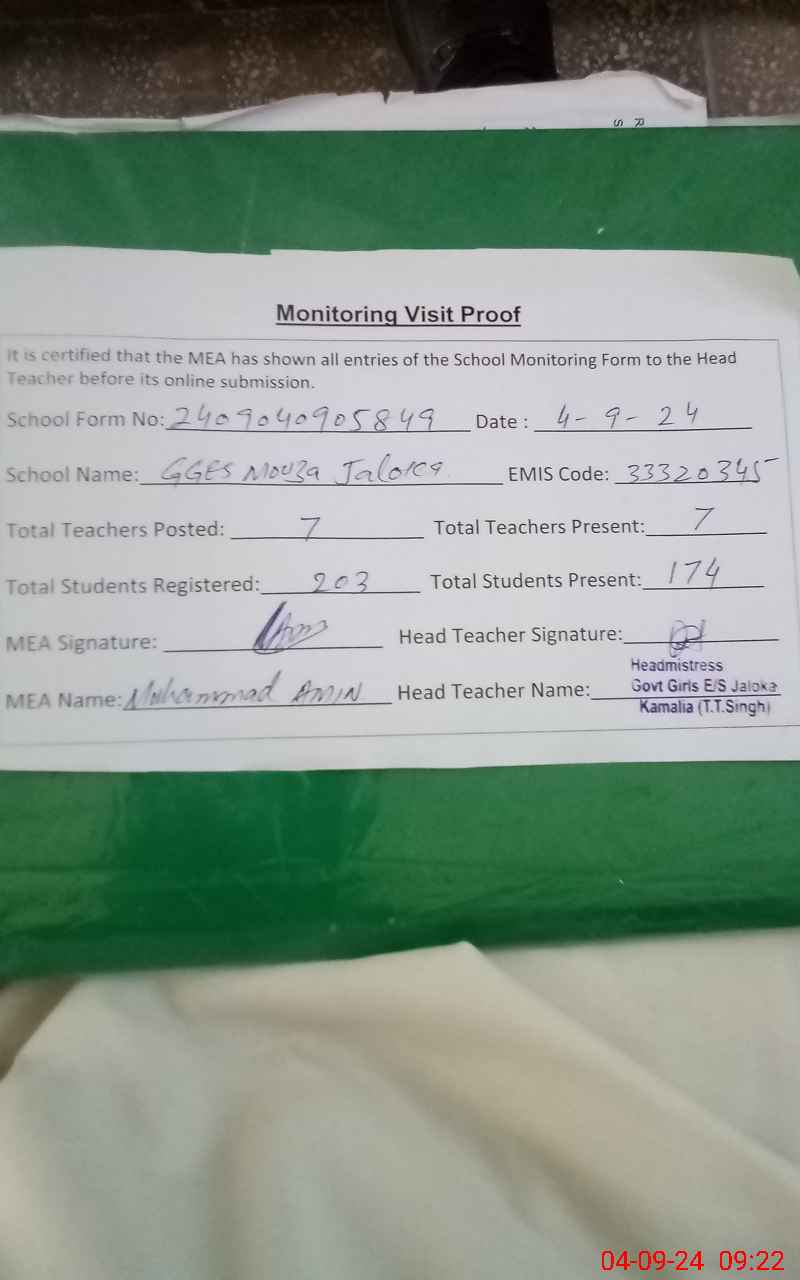 Monitoring Visit Proof
It is certified that the MEA has shown all entries of the School Monitoring Form to the Head
Teacher before its online submission.
School Form No: 2409040905849 Date : 4-9-24
School Name: GGES Mouza Jaloka EMIS Code: 33320345
Total Teachers Posted: 7 Total Teachers Present: 7
Total Students Registered: 203 Total Students Present: 174
MEA Signature: Head Teacher Signature:
Headmistress
MEA Name: Muhammad AMIN Head Teacher Name: Govt Girls E/S Jaloka
Kamalia (T.T.Singh)
04-09-24 09:22